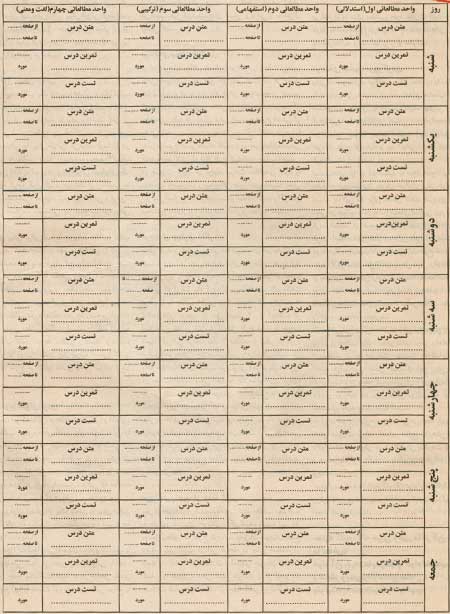 روز واحد مطالعاتی اول(استدلالی) واحد مطالعاتی دوم (استفهامی) واحد مطالعاتی سوم (ترکیبی) واحد مطالعاتی چهارم(لغت ومعنی)
شنبه
متن درس از صفحه متن درس از صفحه متن درس از صفحه متن درس از صفحه
تا صفحه تا صفحه تا صفحه تا صفحه
تمرین درس تمرین درس تمرین درس تمرین درس
مورد مورد مورد مورد
تست درس تست درس تست درس تست درس
مورد مورد مورد مورد
یکشنبه
متن درس از صفحه متن درس از صفحه متن درس از صفحه متن درس از صفحه
تا صفحه تا صفحه تا صفحه تا صفحه
تمرین درس تمرین درس تمرین درس تمرین درس
مورد مورد مورد مورد
تست درس تست درس تست درس تست درس
مورد مورد مورد مورد
دوشنبه
متن درس از صفحه متن درس از صفحه متن درس از صفحه متن درس از صفحه
تا صفحه تا صفحه تا صفحه تا صفحه
تمرین درس تمرین درس تمرین درس تمرین درس
مورد مورد مورد مورد
تست درس تست درس تست درس تست درس
مورد مورد مورد مورد
سه شنبه
متن درس از صفحه متن درس از صفحه متن درس از صفحه متن درس از صفحه
تا صفحه تا صفحه تا صفحه تا صفحه
تمرین درس تمرین درس تمرین درس تمرین درس
مورد مورد مورد مورد
تست درس تست درس تست درس تست درس
مورد مورد مورد مورد
چهارشنبه
متن درس از صفحه متن درس از صفحه متن درس از صفحه متن درس از صفحه
تا صفحه تا صفحه تا صفحه تا صفحه
تمرین درس تمرین درس تمرین درس تمرین درس
مورد مورد مورد مورد
تست درس تست درس تست درس تست درس
مورد مورد مورد مورد
پنج شنبه
متن درس از صفحه متن درس از صفحه متن درس از صفحه متن درس از صفحه
تا صفحه تا صفحه تا صفحه تا صفحه
تمرین درس تمرین درس تمرین درس تمرین درس
مورد مورد مورد مورد
تست درس تست درس تست درس تست درس
مورد مورد مورد مورد
جمعه
متن درس از صفحه متن درس از صفحه متن درس از صفحه متن درس از صفحه
تا صفحه تا صفحه تا صفحه تا صفحه
تمرین درس تمرین درس تمرین درس تمرین درس
مورد مورد مورد مورد
تست درس تست درس تست درس تست درس
مورد مورد مورد مورد